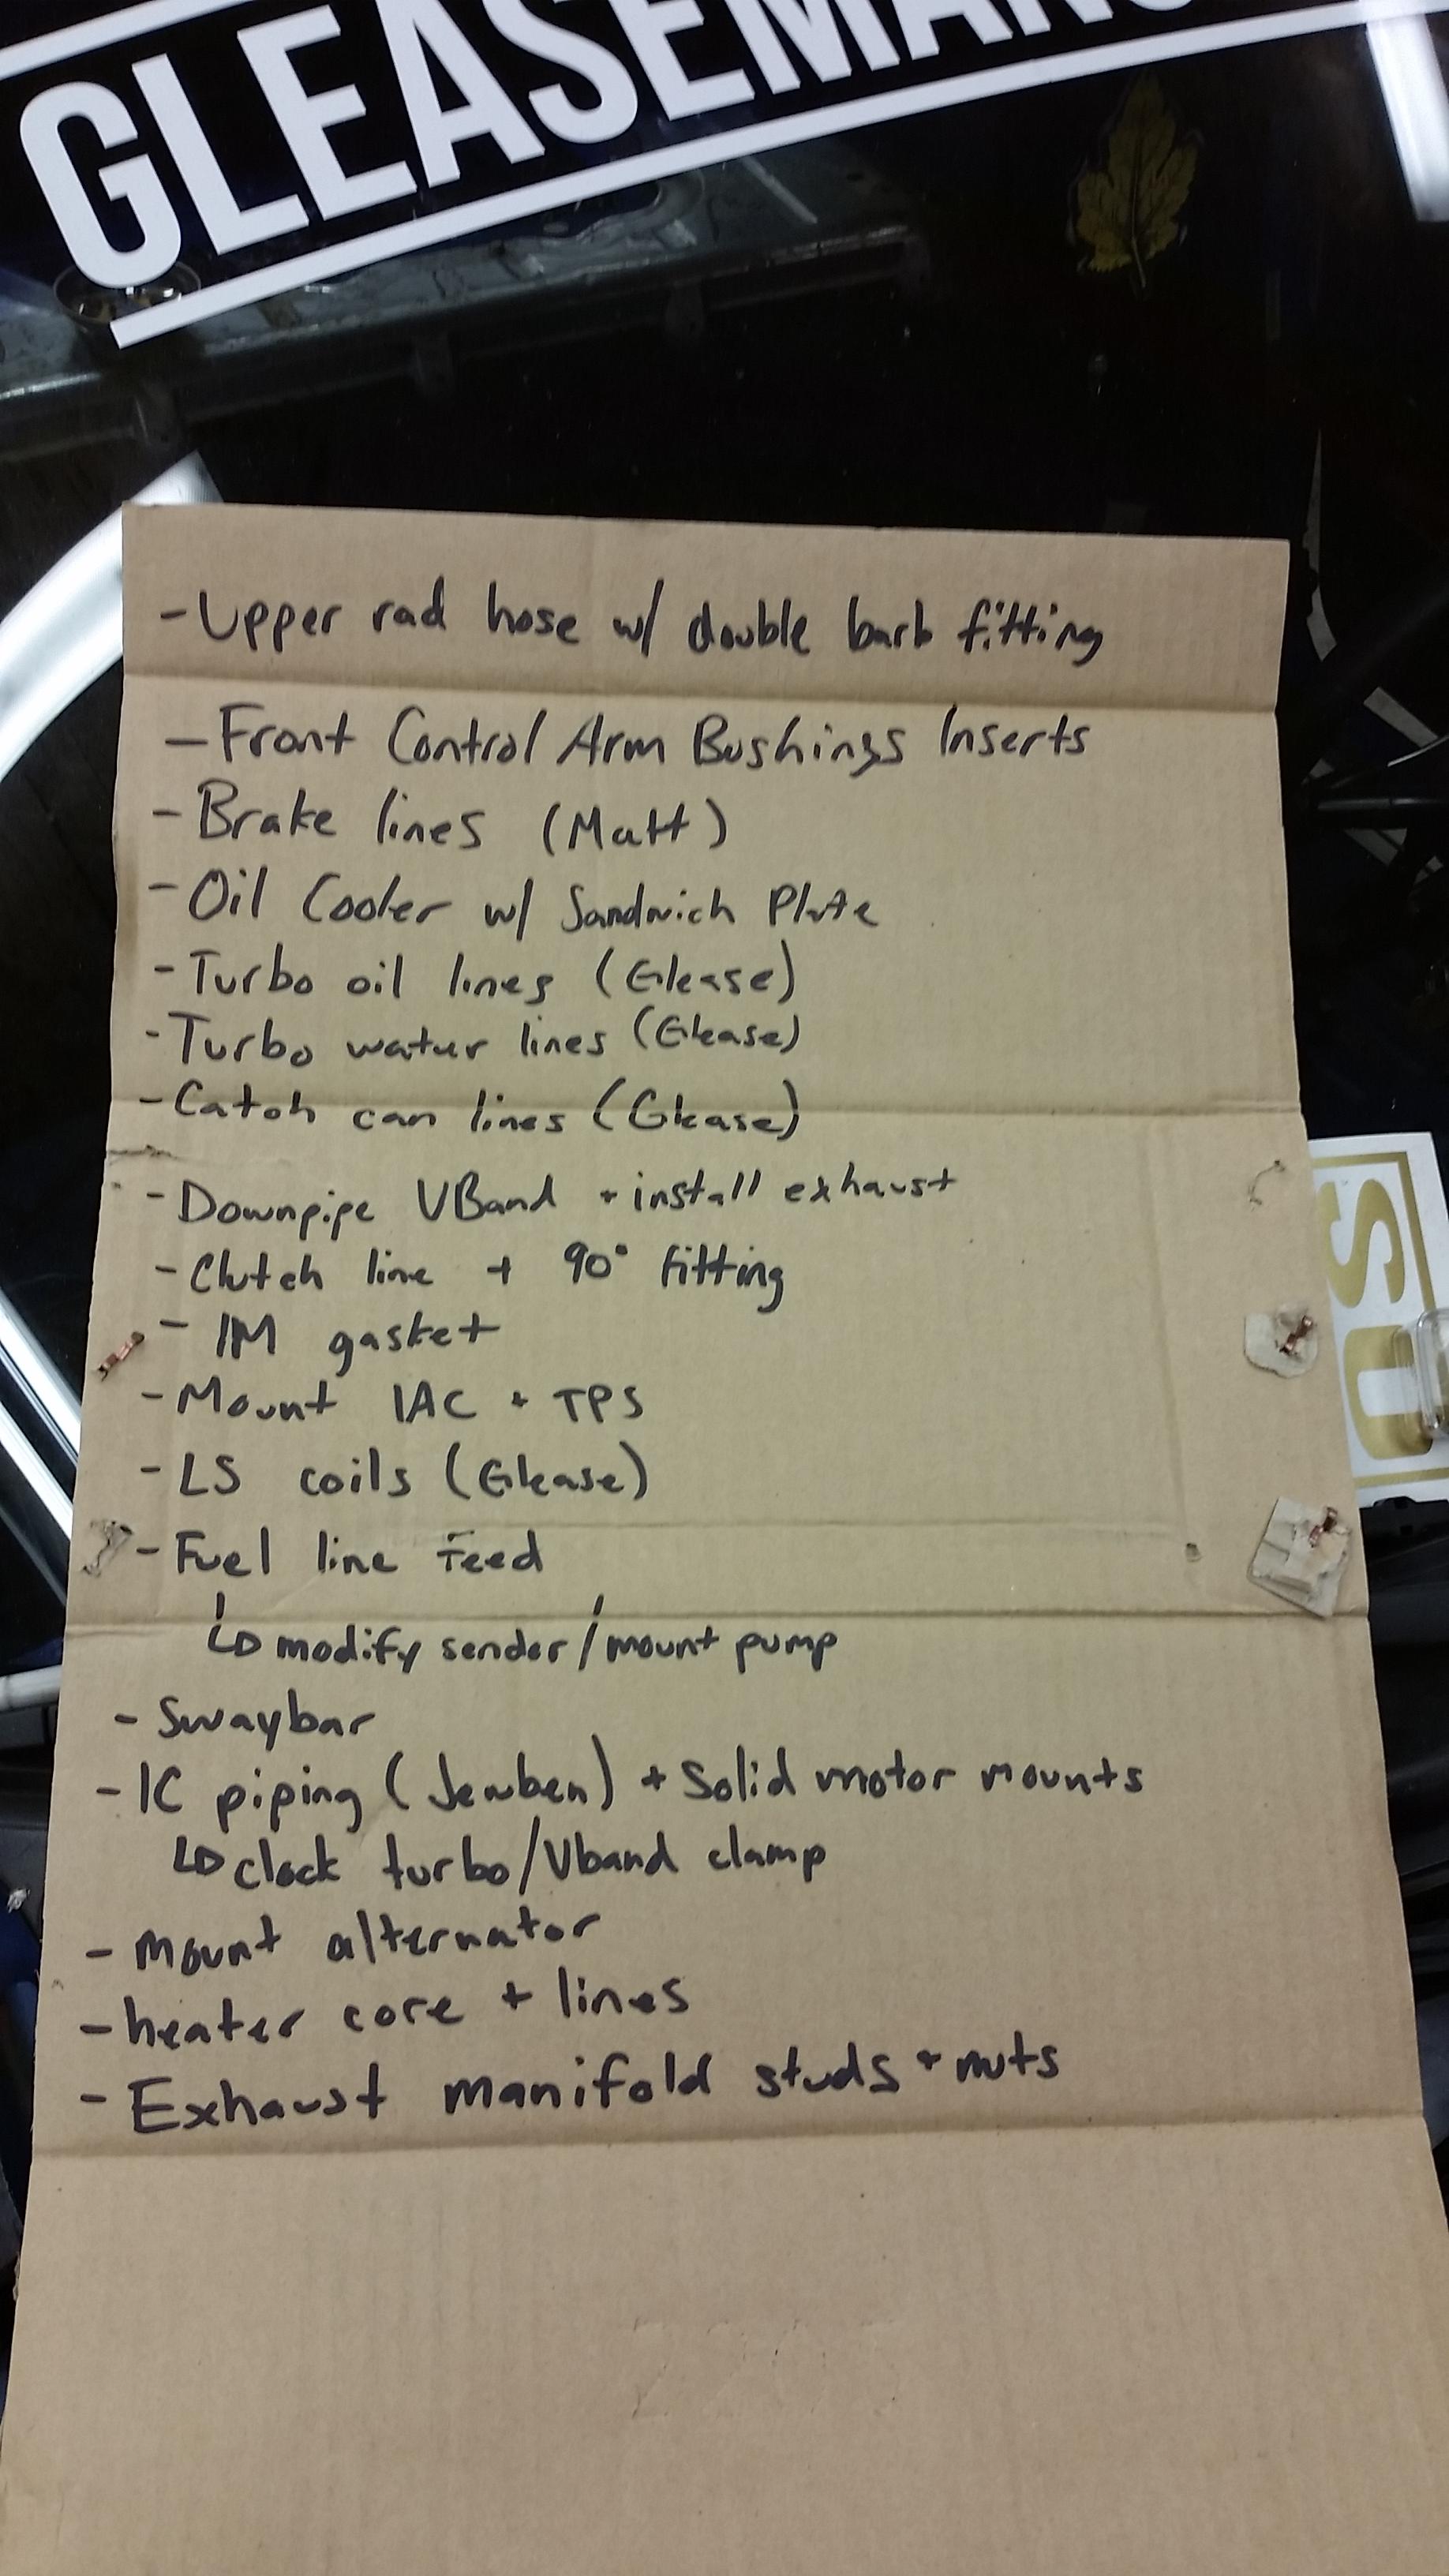 GLEASEMAN
- Upper rad hose w/ double barb fitting
- Front Control Arm Bushings Inserts
- Brake lines (Matt)
- Oil Cooler w/ Sandwich Plate
- Turbo oil lines (Glease)
- Turbo water lines (Glease)
- Catch can lines (Glease)
- Downpipe VBand + install exhaust
- Clutch line + 90° fitting
- IM gasket
- Mount IAC + TPS
- LS coils (Glease)
- Fuel line feed
↳ modify sender/mount pump
- Swaybar
- IC piping (Jewben) + Solid motor mounts
↳ clock turbo/Vband clamp
- Mount alternator
- heater core + lines
- Exhaust manifold studs + nuts